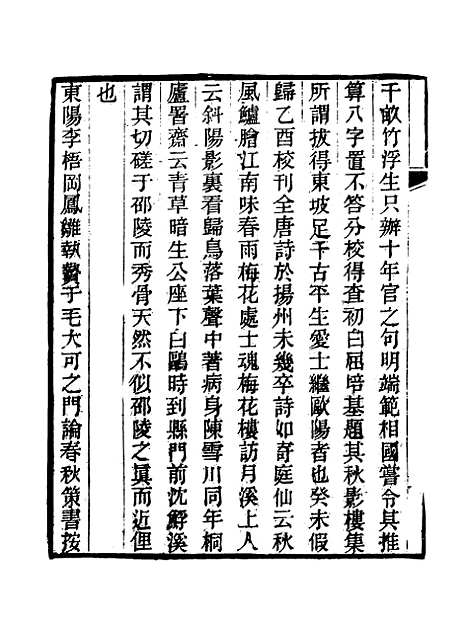 千畝竹浮生只辦十年官之句明端範相國嘗令其推
算八字置不答分校得查初白屈培基題其秋影樓集
所謂拔得東坡足千古平生愛士繼歐陽者也癸未假
歸乙酉校刊全唐詩於揚州未幾卒詩如奇庭仙云秋
風鱸膾江南味春雨梅花處士魂梅花樓訪月溪上人
云斜陽影裏看歸鳥落葉聲中著病身陳雪川同年桐
廬署齋云青草暗生公座下白鷗時到縣門前沈
溪
謂其切磋于邵陵而秀骨天然不似邵陵之眞而近俚
也
東陽李梧岡鳳雛執贄于毛大可之門論春秋策書按